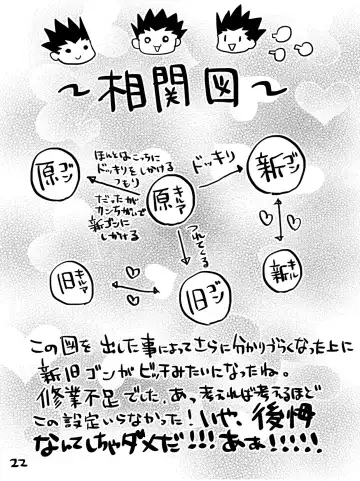 ～相関図～
原ゴン
ほんとはこっちに
ドッキリをしかける
つもり
だったが
カンちがいで
新ゴンに
しかける
原キルア
ドッキリ
新ゴン
つれてくる
新キル
旧キルア
旧ゴン
この図を出した事によってさらに分かりづらくなった上に
新旧ゴンがビッチみたいになったね。
修業不足でした。あっ考えれば考えるほど
この設定いらなかった!いや、後悔
なんてしちゃダメだ!!!あぁ!!!!!
22